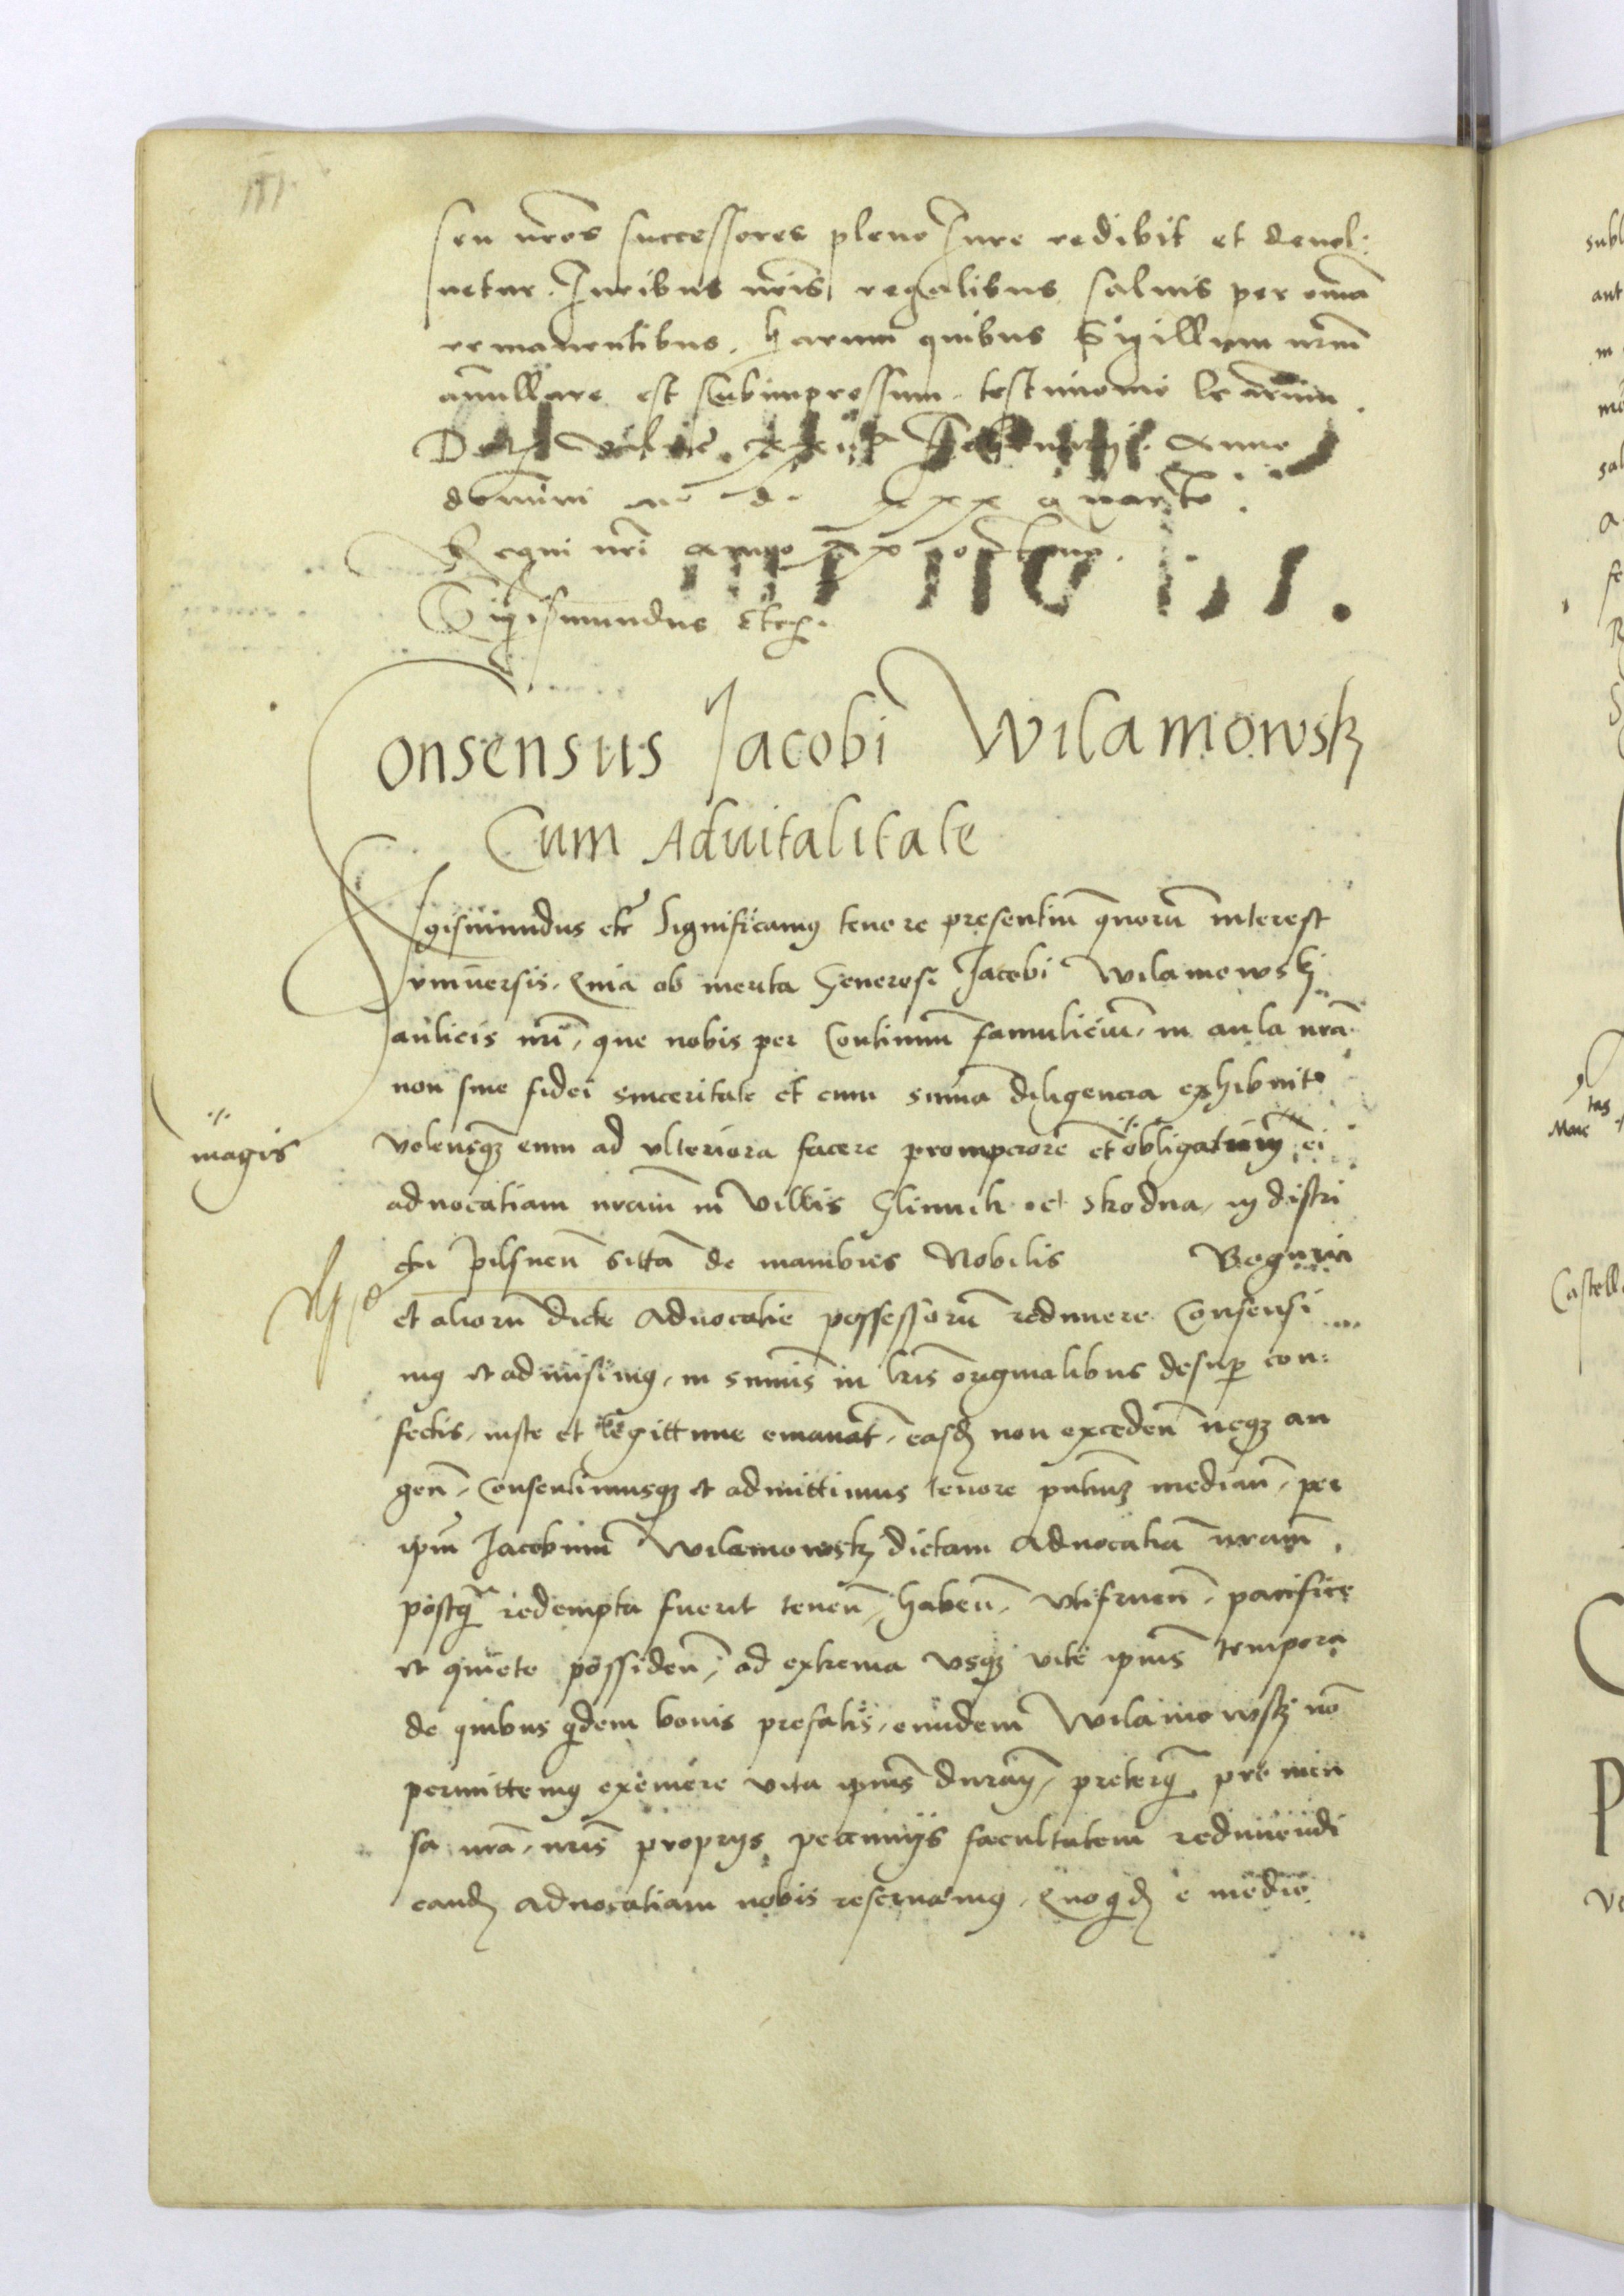 seu nros successores pleno Jure redibit et devol:
uetur. Juribus nris regalibus saluis per oma
remanentibus. harum quibus Sigillum nrm
anullare est subimpressum. testimonio lrarum.
Anno
domini m d xxx quarto.
Regni nri anno xx octavo.
Sigismundus etc.
Consensus Jacobi Wilamowskj
Cum Aduitalitate
Sigismundus etc Significamus tenore presentium quorum interest
vniuersis. Quia ob merita Generosi Jacobi Wilamowskj
aulicis nri, que nobis per Continuum famulicium, in aula nra
non sine fidei sinceritate et cum summa diligencia exhibuit
magis
volensque eum ad vlteriora facere prompciorem et obligatum, ei
aduocatiam nram in Villis Glinnik et Skodna, in distri
ctu Pilsnen sittam de manibus Nobilis Boguria
et aliorum dicte Aduocatie possessorum redimere Consensi
mus et admisimus, in summis in lris originalibus desuper con:
fectis, iuste et legittime emanat, easdem non exceden neque au
gen, Consentimusque et admittimus tenore pntium median, per
ipm Jacobum Wilamowskj dictam Aduocatiam nram,
postquam redempta fuerit tenen, haben, vtifruen, pacifice
et quiete possiden, ad extrema vsque vite ipius tempora
de quibus quidem bonis prefatis, eundem Wilamowskj non
permittemus eximere vita ipius duran, preterquam pro men
sa nra, nris proprijs pecunijs facultatem redimendi
eandem aduocatiam nobis reseruamus, Quoquidem e medio